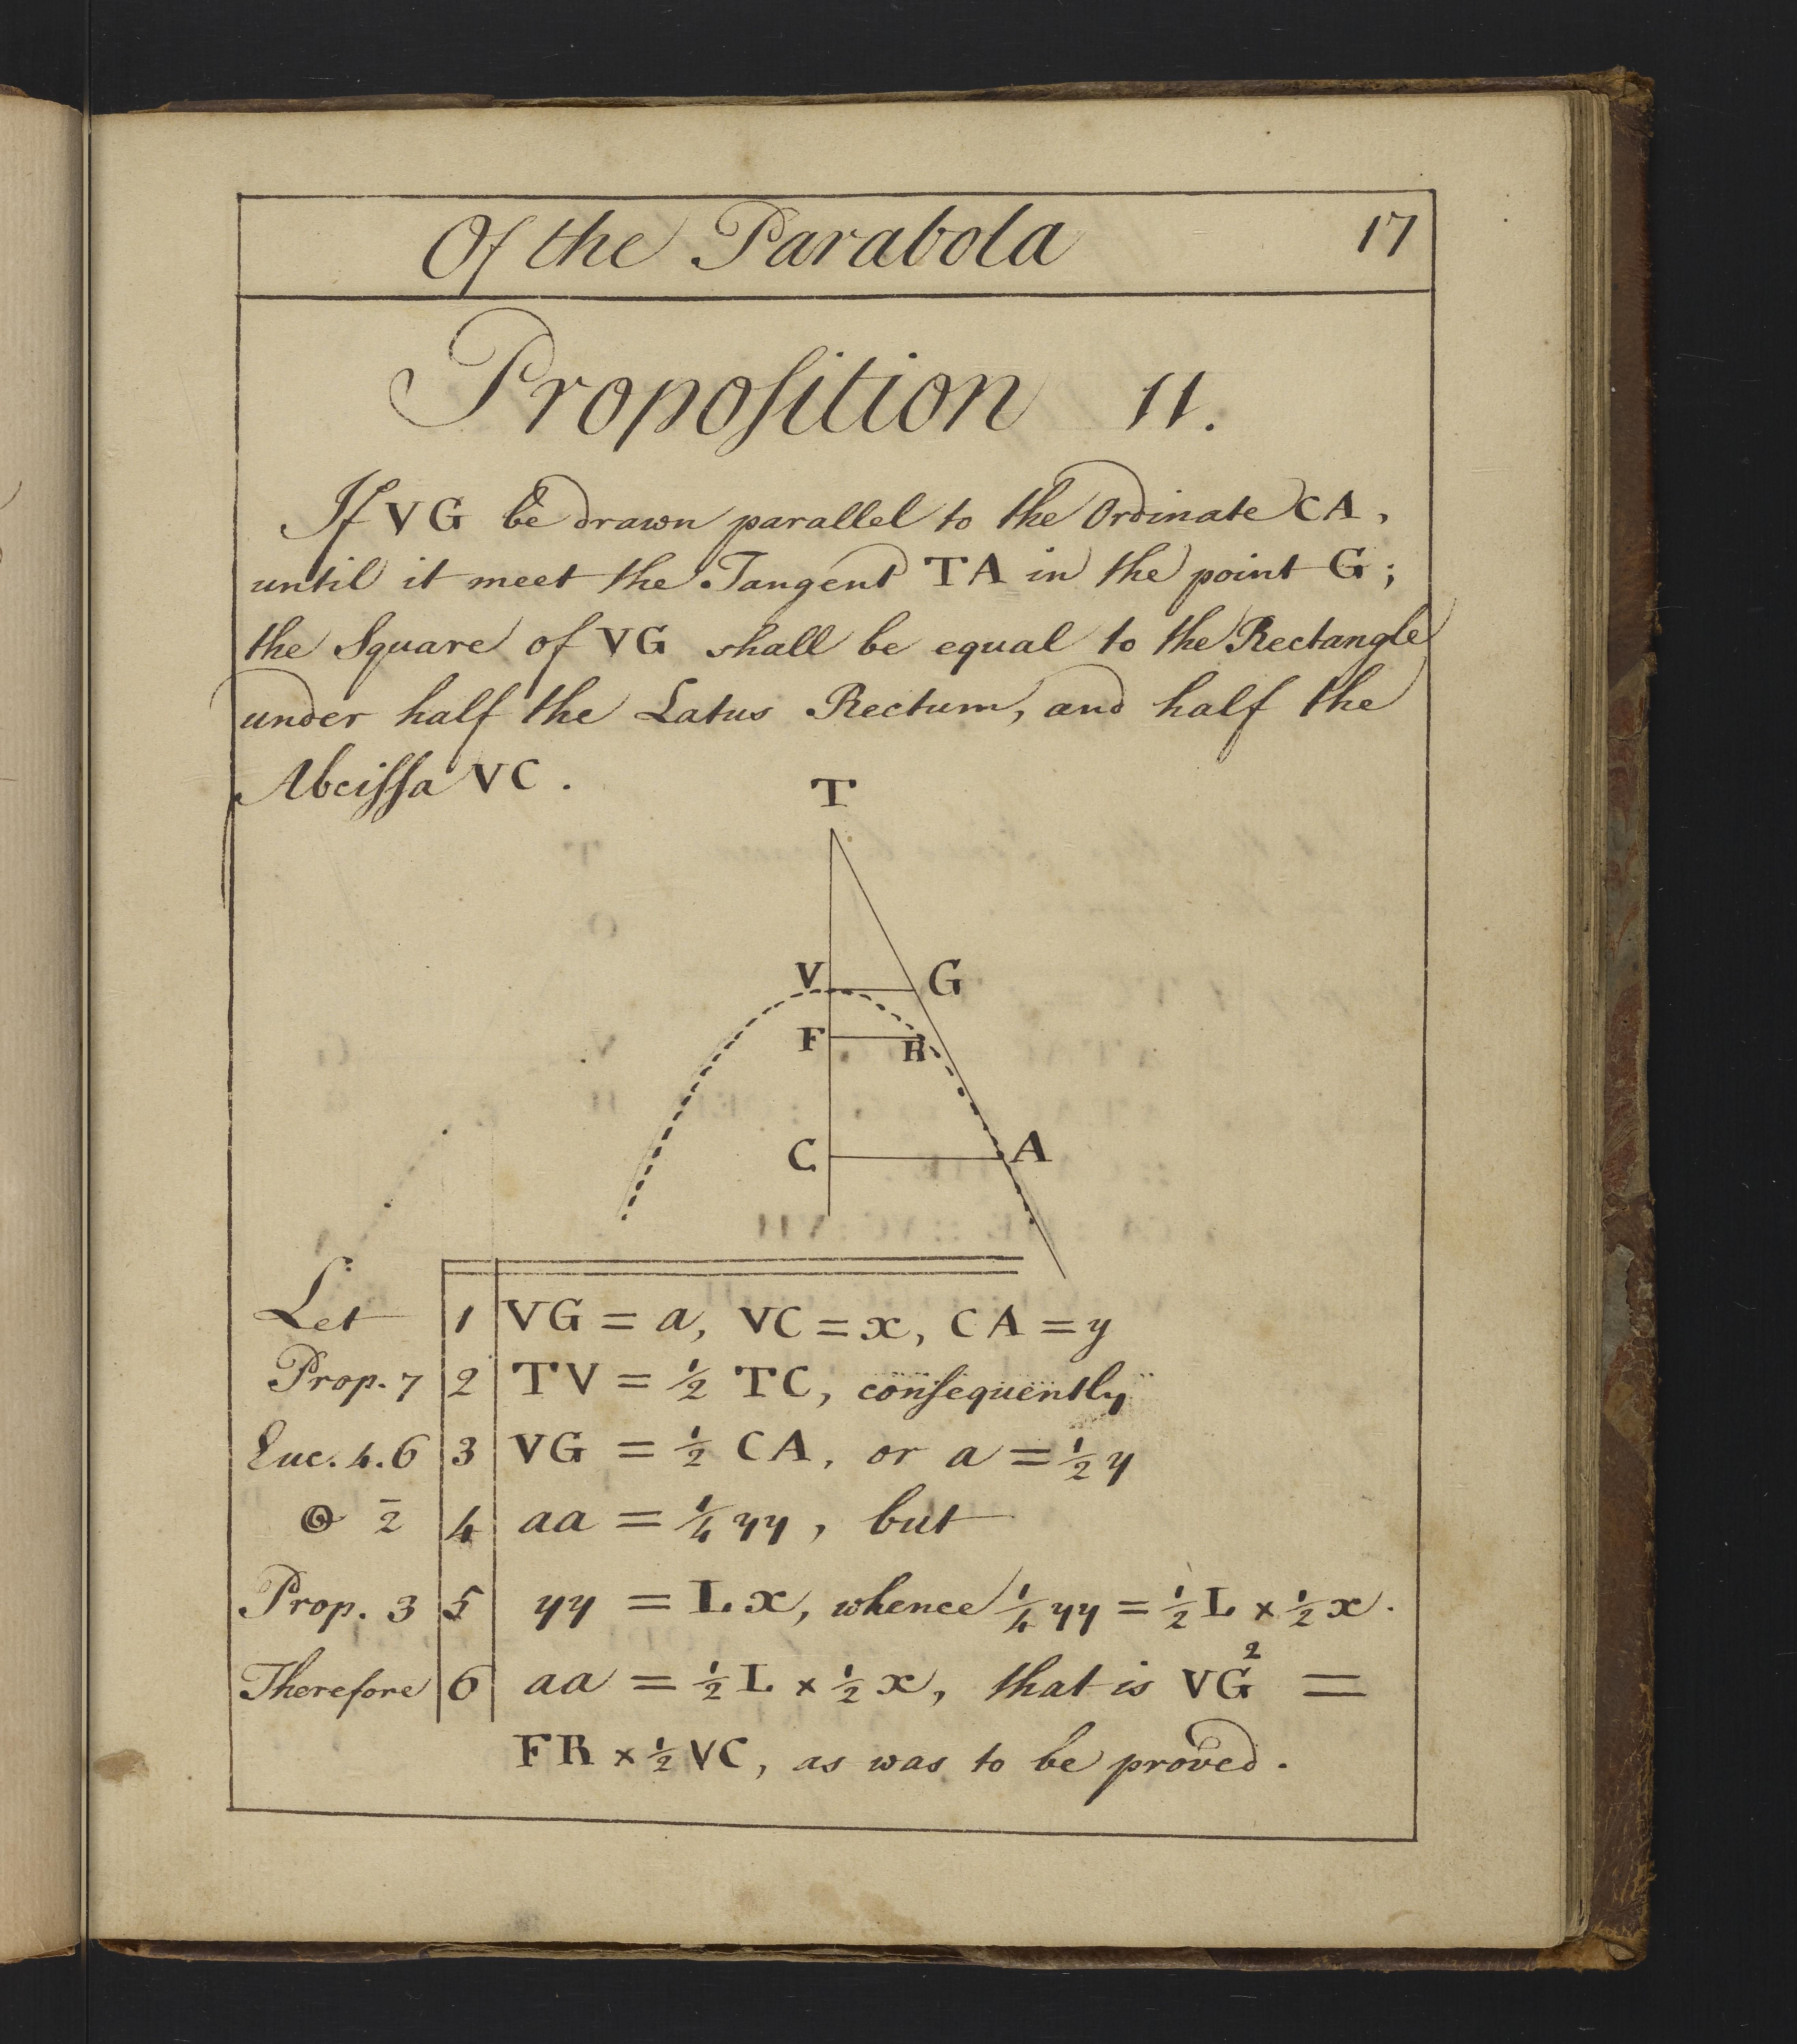 Of the Parabola 17
Propoſition 11.
If VG be drawn parallel to the Ordinate CA,
until it meet the Tangent TA in the point G;
the Square of VG shall be equal to the Rectangle
under half the Latus Rectum, and half the
Abciſſa VC.
T
V G
F R
C A
Let 1 VG = a, VC = x, CA = y
Prop. 7 2 TV = ½ TC, conſequently
Euc. 4.6 3 VG = ½ CA, or a = ½ y
2 4 aa = ¼ yy, but
Prop. 3 5 yy = Lx, whence ¼ yy = ½ L × ½ x.
Therefore 6 aa = ½ L × ½ x, that is VG² =
FR × ½ VC, as was to be proved.